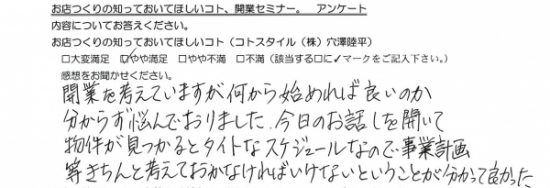 お店つくりの知っておいてほしいコト、開業セミナー。　アンケート
内容についてお答えください。
お店つくりの知っておいてほしいコト（コトスタイル（株）穴澤陸平）
□大変満足　☑やや満足　□やや不満　□不満（該当する□に✓マークをご記入下さい。）
感想をお聞かせください。
開業を考えていますが何から始めれば良いのか
分からず悩んでおりました。今日のお話しを聞いて
物件が見つかるとタイトなスケジュールなので事業計画
等きちんと考えておかなければいけないということが分かって良かった